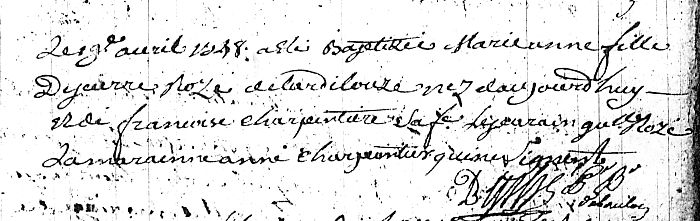 Le 9e avril 1748 a esté Baptisée Marie anne fille
De pierre Rozé de lardilouze nez daujourdhuy
et de francoise charpentiere sa fe. Le parain Rozé
La maraine anne charpentier qui ne signent